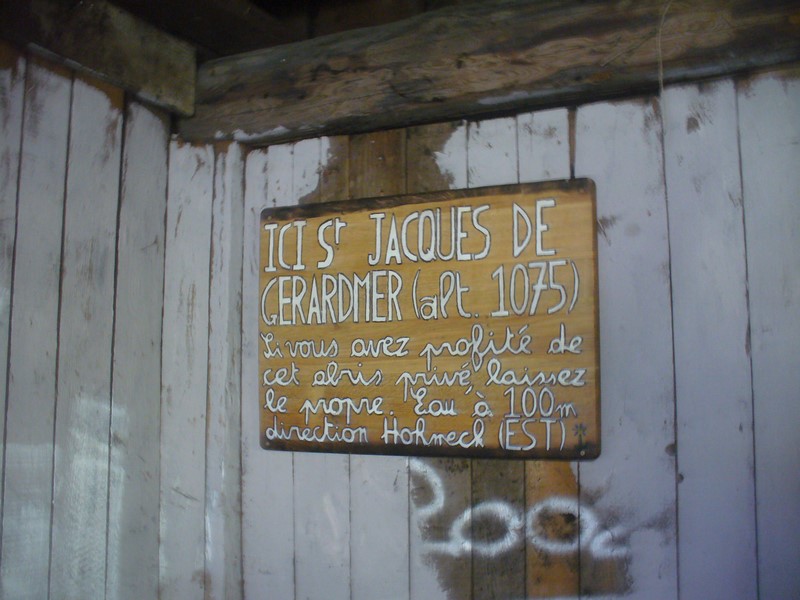 ICI St JACQUES DE
GERARDMER (alt. 1075)
Si vous avez profité de
cet abris privé, laissez
le propre. Eau à 100m
direction Hohneck (EST)